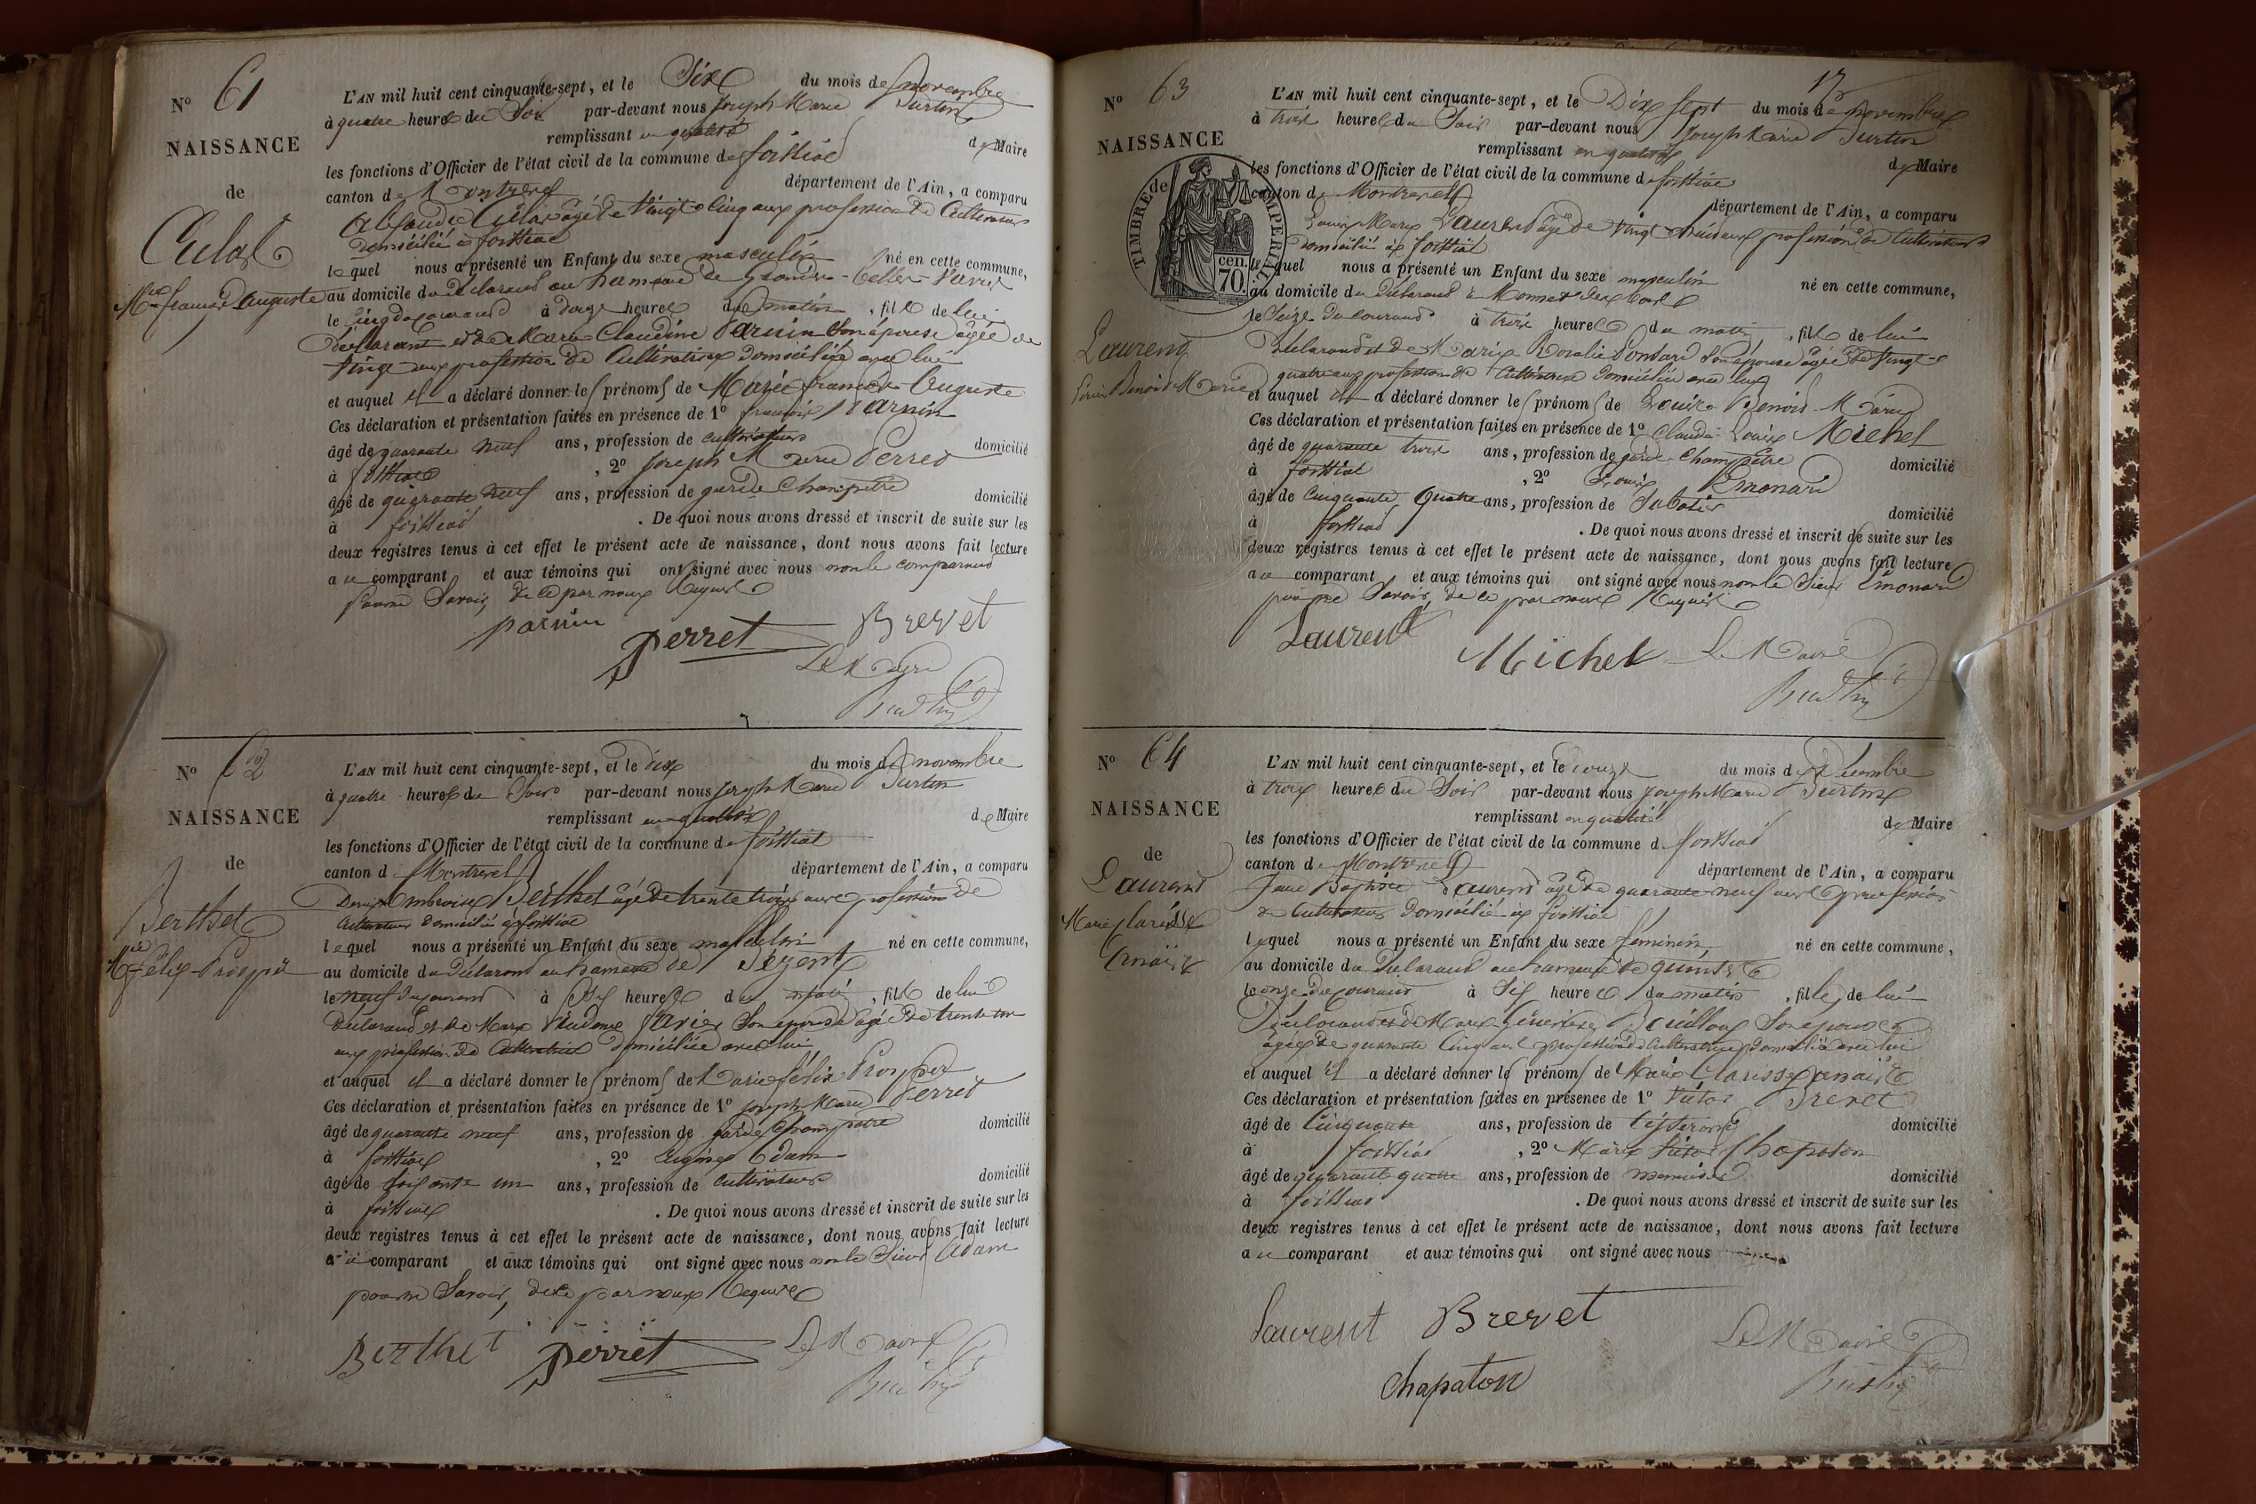 N° 61
NAISSANCE
de
Culas
Mie françois Auguste
L'AN mil huit cent cinquante-sept, et le Six du mois de novembre
à quatre heures du Soir par-devant nous Joseph Marie Burtin
remplissant en qualité de Maire
les fonctions d'Officier de l'état civil de la commune de foissiat
canton de Montrevel département de l'Ain, a comparu
Culas âgé de Vingt cinq ans profession de Cultivateur
domicilié à foissiat
lequel nous a présenté un Enfant du sexe masculin né en cette commune,
au domicile du déclarant au hameau de
le cinq du courant à heures du matin, fils de lui
déclarant et de Marie Claudine Parnin Son épouse âgée de
Vingt ans profession de Cultivatrice domiciliée avec lui
et auquel il a déclaré donner les prénoms de Marie françois Auguste
Ces déclaration et présentation faites en présence de 1° françois Parnin
âgé de quarante neuf ans, profession de cultivateur domicilié
à foissiat, 2° Joseph Marie Perret
âgé de quarante neuf ans, profession de garde Champêtre domicilié
à foissiat. De quoi nous avons dressé et inscrit de suite sur les
deux registres tenus à cet effet le présent acte de naissance, dont nous avons fait lecture
au comparant et aux témoins qui ont signé avec nous non le comparant
pour ne Savoir, de ce par nous Requis
parnin perret Brevet
Le Maire
Burtin
N° 62
NAISSANCE
de
Berthet
Mie félix Prosper
L'AN mil huit cent cinquante-sept, et le dix du mois de novembre
à quatre heures du Soir par-devant nous Joseph Marie Burtin
remplissant en qualité de Maire
les fonctions d'Officier de l'état civil de la commune de foissiat
canton d Montrevel département de l'Ain, a comparu
Denis Ambroise Berthet âgé de trente trois ans profession de
Cultivateur domicilié à foissiat
lequel nous a présenté un Enfant du sexe masculin né en cette commune,
au domicile du déclarant au hameau de
le neuf du courant à heures du matin, fils de lui
déclarant et de Marie Son épouse âgée de trente
ans profession de Cultivatrice domiciliée avec lui
et auquel il a déclaré donner les prénoms de Marie félix Prosper
Ces déclaration et présentation faites en présence de 1° Joseph Marie Perret
âgé de quarante neuf ans, profession de garde Champêtre domicilié
à foissiat, 2° Adam
âgé de soixante un ans, profession de cultivateur domicilié
à foissiat. De quoi nous avons dressé et inscrit de suite sur les
deux registres tenus à cet effet le présent acte de naissance, dont nous avons fait lecture
au comparant et aux témoins qui ont signé avec nous non le Sieur Adam
pour ne Savoir, de ce par nous Requis
Berthet perret Le Maire
Burtin
17
N° 63
NAISSANCE
de
TIMBRE IMPERIAL
70 cen.
Laurent
Louis Benoit Marie
L'AN mil huit cent cinquante-sept, et le Dix Sept du mois de novembre
à trois heures du Soir par-devant nous Joseph Marie Burtin
remplissant en qualité de Maire
les fonctions d'Officier de l'état civil de la commune de foissiat
canton de Montrevel département de l'Ain, a comparu
Louis Marie Laurent âgé de Vingt huit ans profession de Cultivateur
domicilié à foissiat
lequel nous a présenté un Enfant du sexe masculin né en cette commune,
au domicile du déclarant
le Seize du courant à trois heures du matin, fils de lui
déclarant et de Marie Rosalie Pondard Son épouse âgée de Vingt
quatre ans profession de Cultivatrice domiciliée avec lui
et auquel il a déclaré donner les prénoms de Louis Benoit Marie
Ces déclaration et présentation faites en présence de 1° Claude Louis Michel
âgé de quarante trois ans, profession de garde Champêtre domicilié
à foissiat, 2° Louis Emonard
âgé de Cinquante Quatre ans, profession de Sabotier domicilié
à foissiat. De quoi nous avons dressé et inscrit de suite sur les
deux registres tenus à cet effet le présent acte de naissance, dont nous avons fait lecture
au comparant et aux témoins qui ont signé avec nous non le Sieur Emonard
pour ne Savoir, de ce par nous Requis
Laurent Michel Le Maire
Burtin
N° 64
NAISSANCE
de
Laurent
Marie Clarisse
Anaïs
L'AN mil huit cent cinquante-sept, et le douze du mois de Décembre
à trois heures du Soir par-devant nous Joseph Marie Burtin
remplissant en qualité de Maire
les fonctions d'Officier de l'état civil de la commune d foissiat
canton de Montrevel département de l'Ain, a comparu
Jean Baptiste Laurent âgé de quarante neuf ans profession
de Cultivateur domicilié à foissiat
lequel nous a présenté un Enfant du sexe féminin né en cette commune,
au domicile du déclarant au hameau de
le onze du courant à Six heures du matin, fille de lui
déclarant et de Marie Son épouse
âgée de quarante Cinq ans profession de Cultivatrice domiciliée avec lui
et auquel il a déclaré donner les prénoms de Marie Clarisse Anaïs
Ces déclaration et présentation faites en présence de 1° Victor Brevet
âgé de Cinquante ans, profession de domicilié
à foissiat, 2° Marie Victor Chapaton
âgé de quarante quatre ans, profession de menuisier domicilié
à foissiat. De quoi nous avons dressé et inscrit de suite sur les
deux registres tenus à cet effet le présent acte de naissance, dont nous avons fait lecture
au comparant et aux témoins qui ont signé avec nous
Laurent Brevet Le Maire
Chapaton Burtin